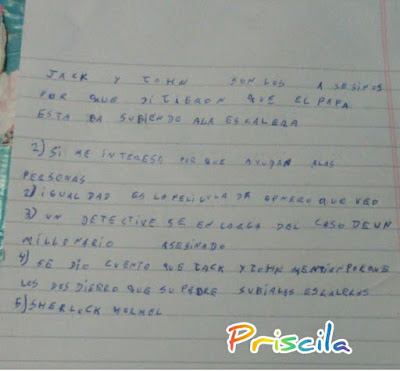 JACK Y JOHN SON LOS ASESINOS
POR QUE DIJIERON QUE EL PAPA
ESTA BA SUBIENDO ALA ESCALERA
2) SI ME INTERESO POR QUE AYUDAN ALAS
PERSONAS
2) IGUAL DAD ES LA PELICULA DE GENERO QUE VEO
3) UN DETECTIVE SE EN CARGA DEL CASO DE UN
MILLONARIO ASESINADO
4) SE DIO CUENTO QUE JACK Y JOHN MENTIAN PORQUE
LOS DOS DIJERO QUE SU PADRE SUBIA LAS ESCALEROS
5) SHERLOCK HOLMEL
Priscila